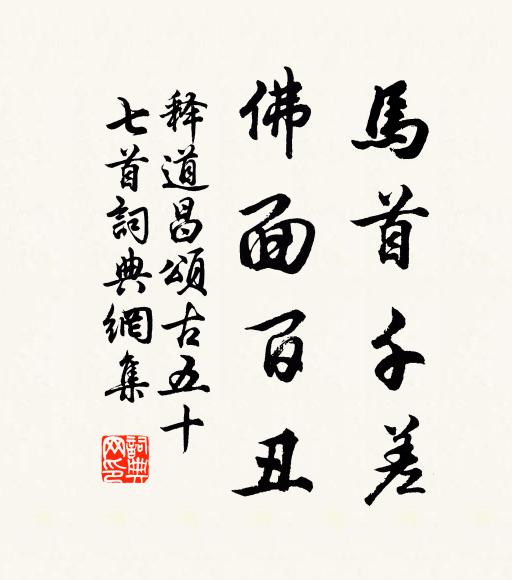 馬首千差
佛面百丑
释道昌頌古五十
七首詞典網集
詞典网印